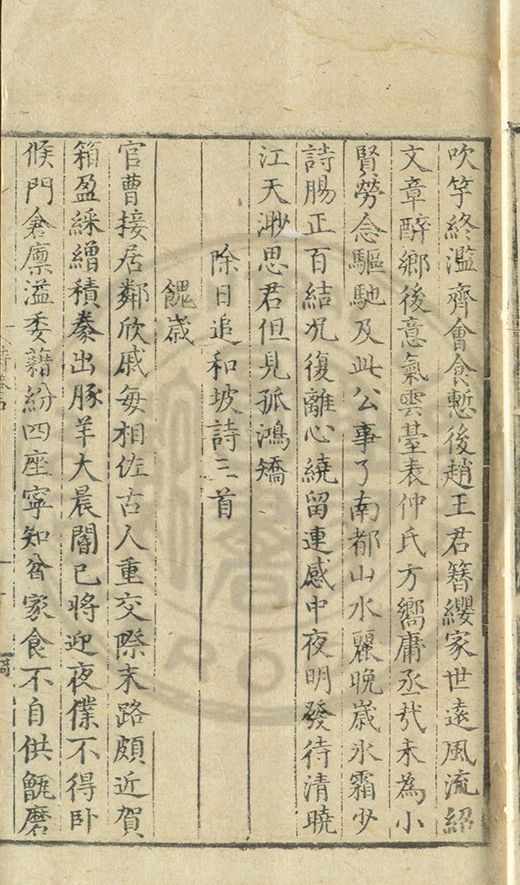 吹竽終濫齊會食慙後趙王君簪纓家世遠風流紹
文章醉鄉後意氣雲臺表仲氏方嚮庸丞哉未為小
賢勞念驅馳及此公事了南都山水麗晚歲氷霜少
詩腸正百結况復離心繞留連感中夜明發待清曉
江天渺思君但見孤鴻矯
除日追和坡詩三首
餽歲
官曹接居鄰欣戚每相佐古人重交際末路頗近賀
箱盈綵繒積豢出豚羊大晨閽已將迎夜僕不得卧
候門倉廩溢委藉紛四座寧知貧家食不自供甑磨